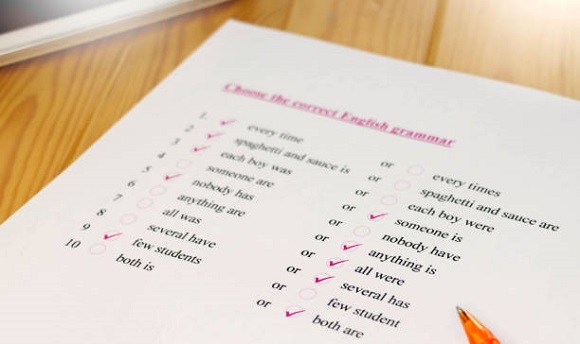 Choose the correct English grammar
1. every time or every times
2 spaghetti and sauce is or spaghetti and sauce are
3 each boy was or each boy were
4 someone are or someone is
5 nobody has or nobody have
6 anything are or anything is
7 all was or all were
8 several have or several has
9 few students or few student
10 both is or both are